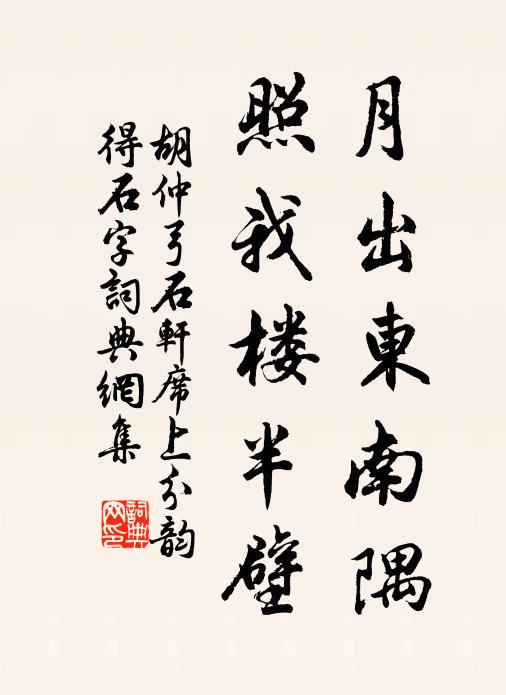 月出東南隅
照我楼半壁
胡仲弓石軒席上分韵
得石字詞典網集
詞典
网印